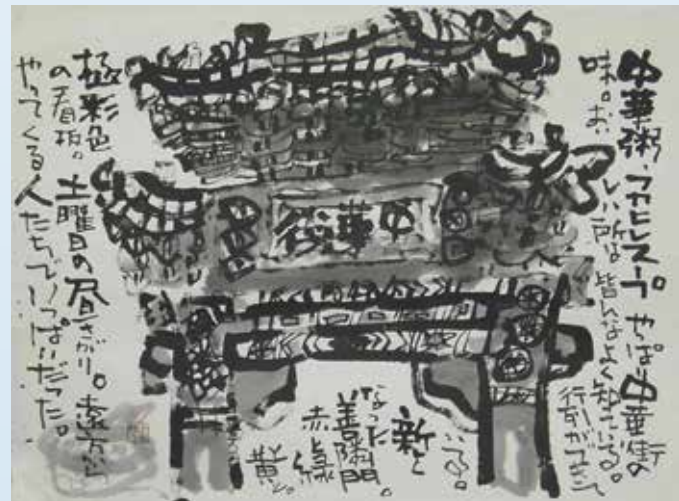 中華粥、フカヒレスープ やっぱり中華街の
味。おいしい所は皆んなよく知っている。
行列ができて
いる。
新しく
なった
善隣門。
赤、緑
黄。
中華街
極彩色
の看板。土曜日の昼さがり。遠方から
やってくる人たちでいっぱいだった。